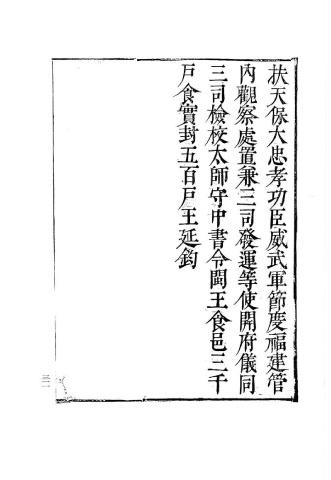 扶天保大忠孝功臣威武軍節度福建管
內觀察處置兼三司發運等使開府儀同
三司檢校太師守中書令閩王食邑三千
戶食實封五百戶王延鈞